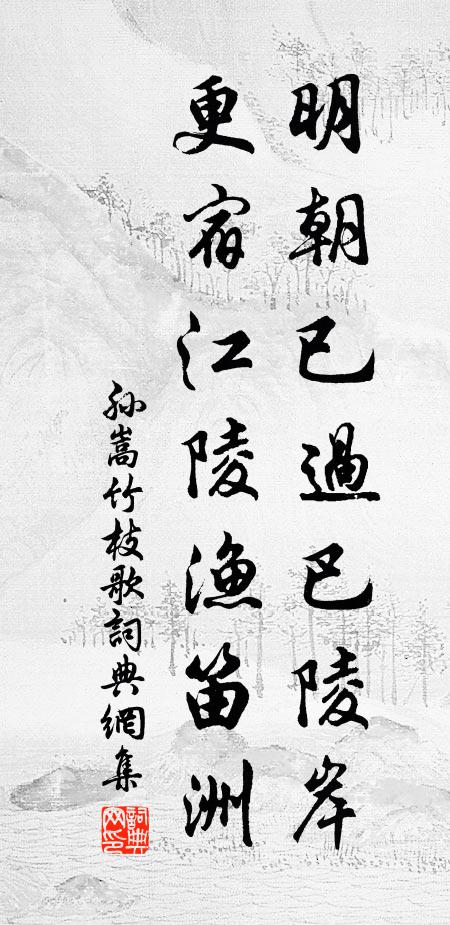 明朝已過已陵岸
更宿江陵漁笛洲
孫嵩竹枝歌詞典網集
詞典网印